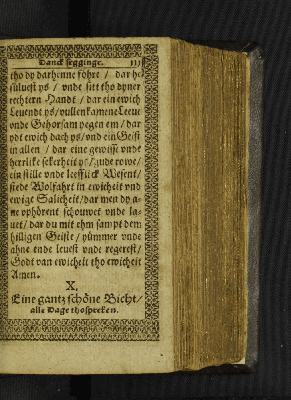 Danck segginge. 111
tho dy darhenne föhre / dar he
süluest ys / vnde sitt tho dyner
rechtern Handt / dar ein ewich
Leuendt ys / vullenkamene Leeue
vnde Gehorsam yegen em / dar
ydt ewich dach ys / vnd ein Geist
in allen / dar eine gewisse vnde
herrlike sekerheit ys / gude rowe /
ein stille vnde leefflick Wesent /
stede Wolfahrt in ewicheit vnd
ewige Salicheit / dar men dy a=
ne vphörent schouwet vnde la=
uet / dar du mit ehm sampt dem
hilligen Geiste / yümmer vnde
ahne ende leuest vnde regerest /
Godt van ewicheit tho ewicheit
Amen.
X.
Eine gantz schöne Bicht /
alle Dage tho spreken.